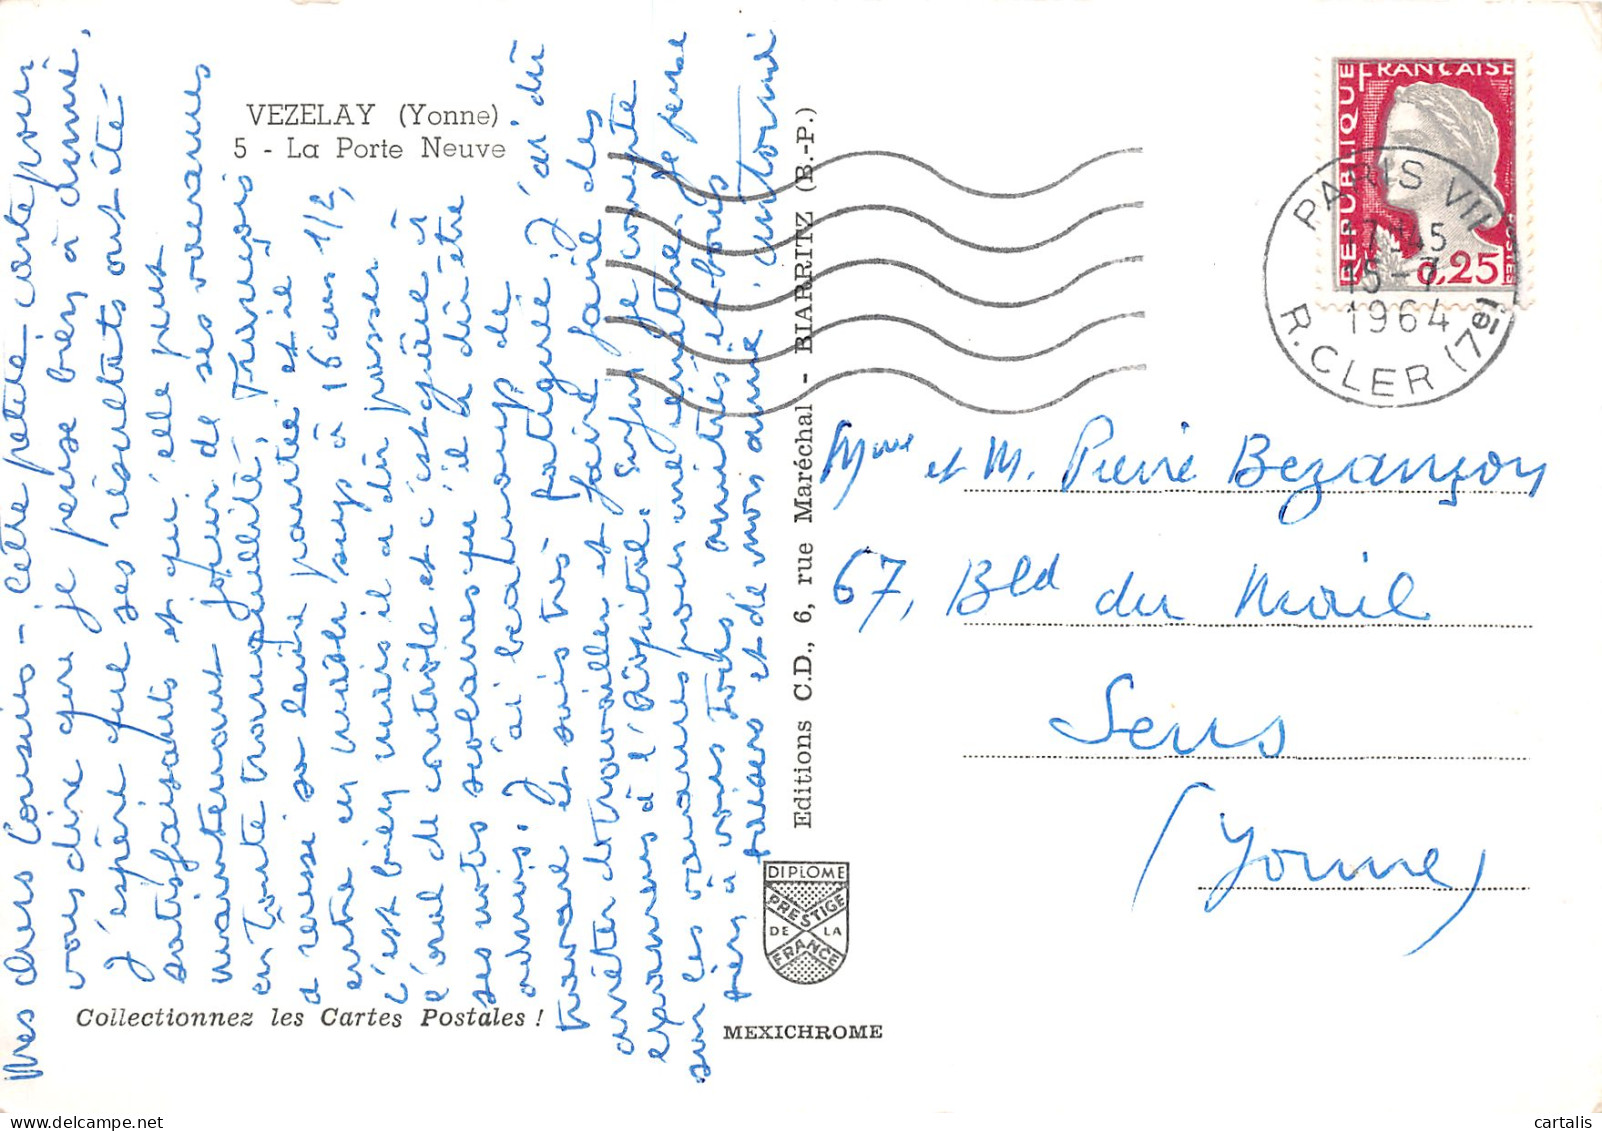 VEZELAY (Yonne)
5 - La Porte Neuve
Mes chers Cousins - Cette petite carte pour
vous dire que je pense bien à Aimé,
J'espère que ses résultats ont été
satisfaisants et qu'elle peut
maintenant jouir de ses vacances
en toute tranquillité, François
a réussi sa partie et il
entre en sup à 16 ans 1/2,
c'est bien mais il a dû passer
l'oral de contrôle et c'est grâce à
ses notes scolaires qu'il a dû être
admis. J'ai beaucoup de
travail et suis très fatiguée J'ai dû
arrêter de travailler et faire faire des
examens à l'hôpital. Enfin je compte
sur les vacances pour me remettre. Je pense
bien à vous Tous, amitiés et bons
baisers et de mon amie.
Editions C.D., 6, rue Maréchal - BIARRITZ (B.-P.)
DIPLOME
PRESTIGE
DE LA
FRANCE
Collectionnez les Cartes Postales !
MEXICHROME
REPUBLIQUE FRANCAISE
POSTES
0,25
PARIS VII
17H45
15-7
1964
R. CLER (7e)
Mme et M. Pierre Bezançon
67, Bld du Mail
Sens
(Yonne)
cartalis